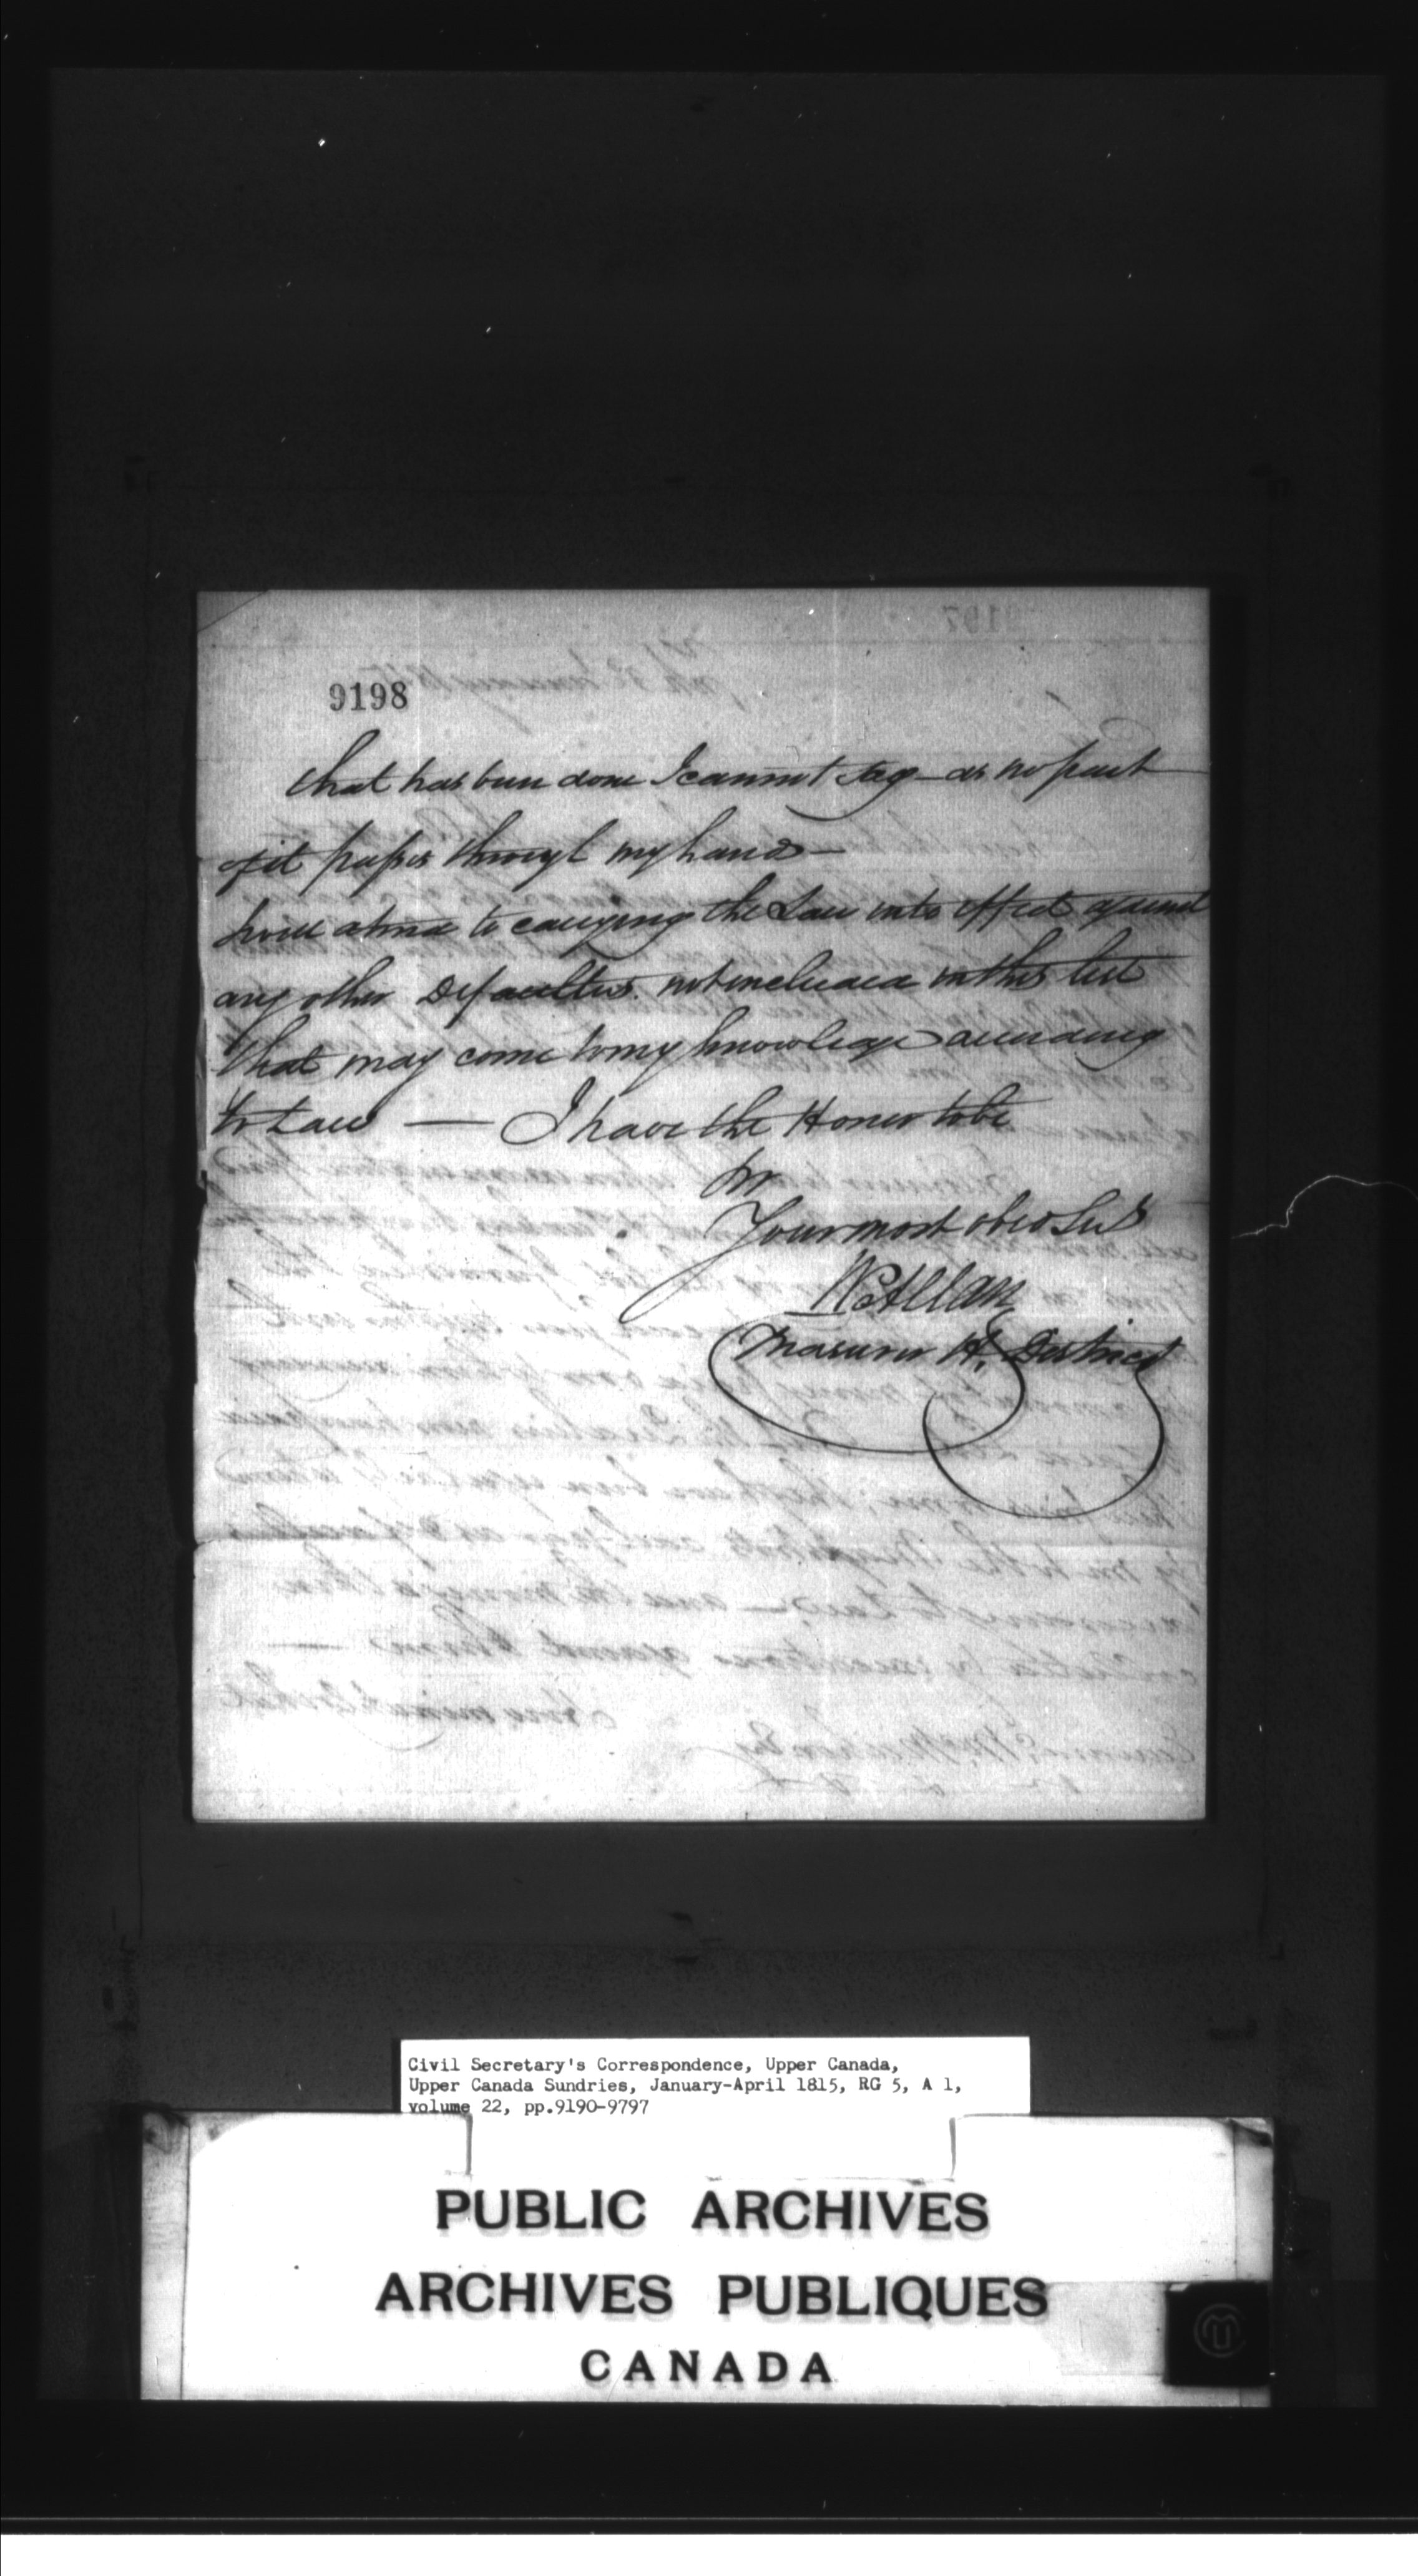 9198
that has been done I cannot say — as no part
of it passes through my hands —
I will attend to carrying the Law into effect against
any other Defaulters not included in this list
that may come to my knowledge according
to Law — I have the Honor to be
Sir
Your most obed Sert
Wm Allan
Treasurer H. District
Civil Secretary's Correspondence, Upper Canada,
Upper Canada Sundries, January-April 1815, RG 5, A 1,
volume 22, pp.9190-9797
PUBLIC ARCHIVES
ARCHIVES PUBLIQUES
CANADA